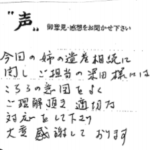 "声"
御意見・感想をお聞かせ下さい
今回の姉の遺産相続に
関し ご担当の 様には
こちらの意図をよく
ご理解頂き適切な
対応をして下さり
大変感謝しております